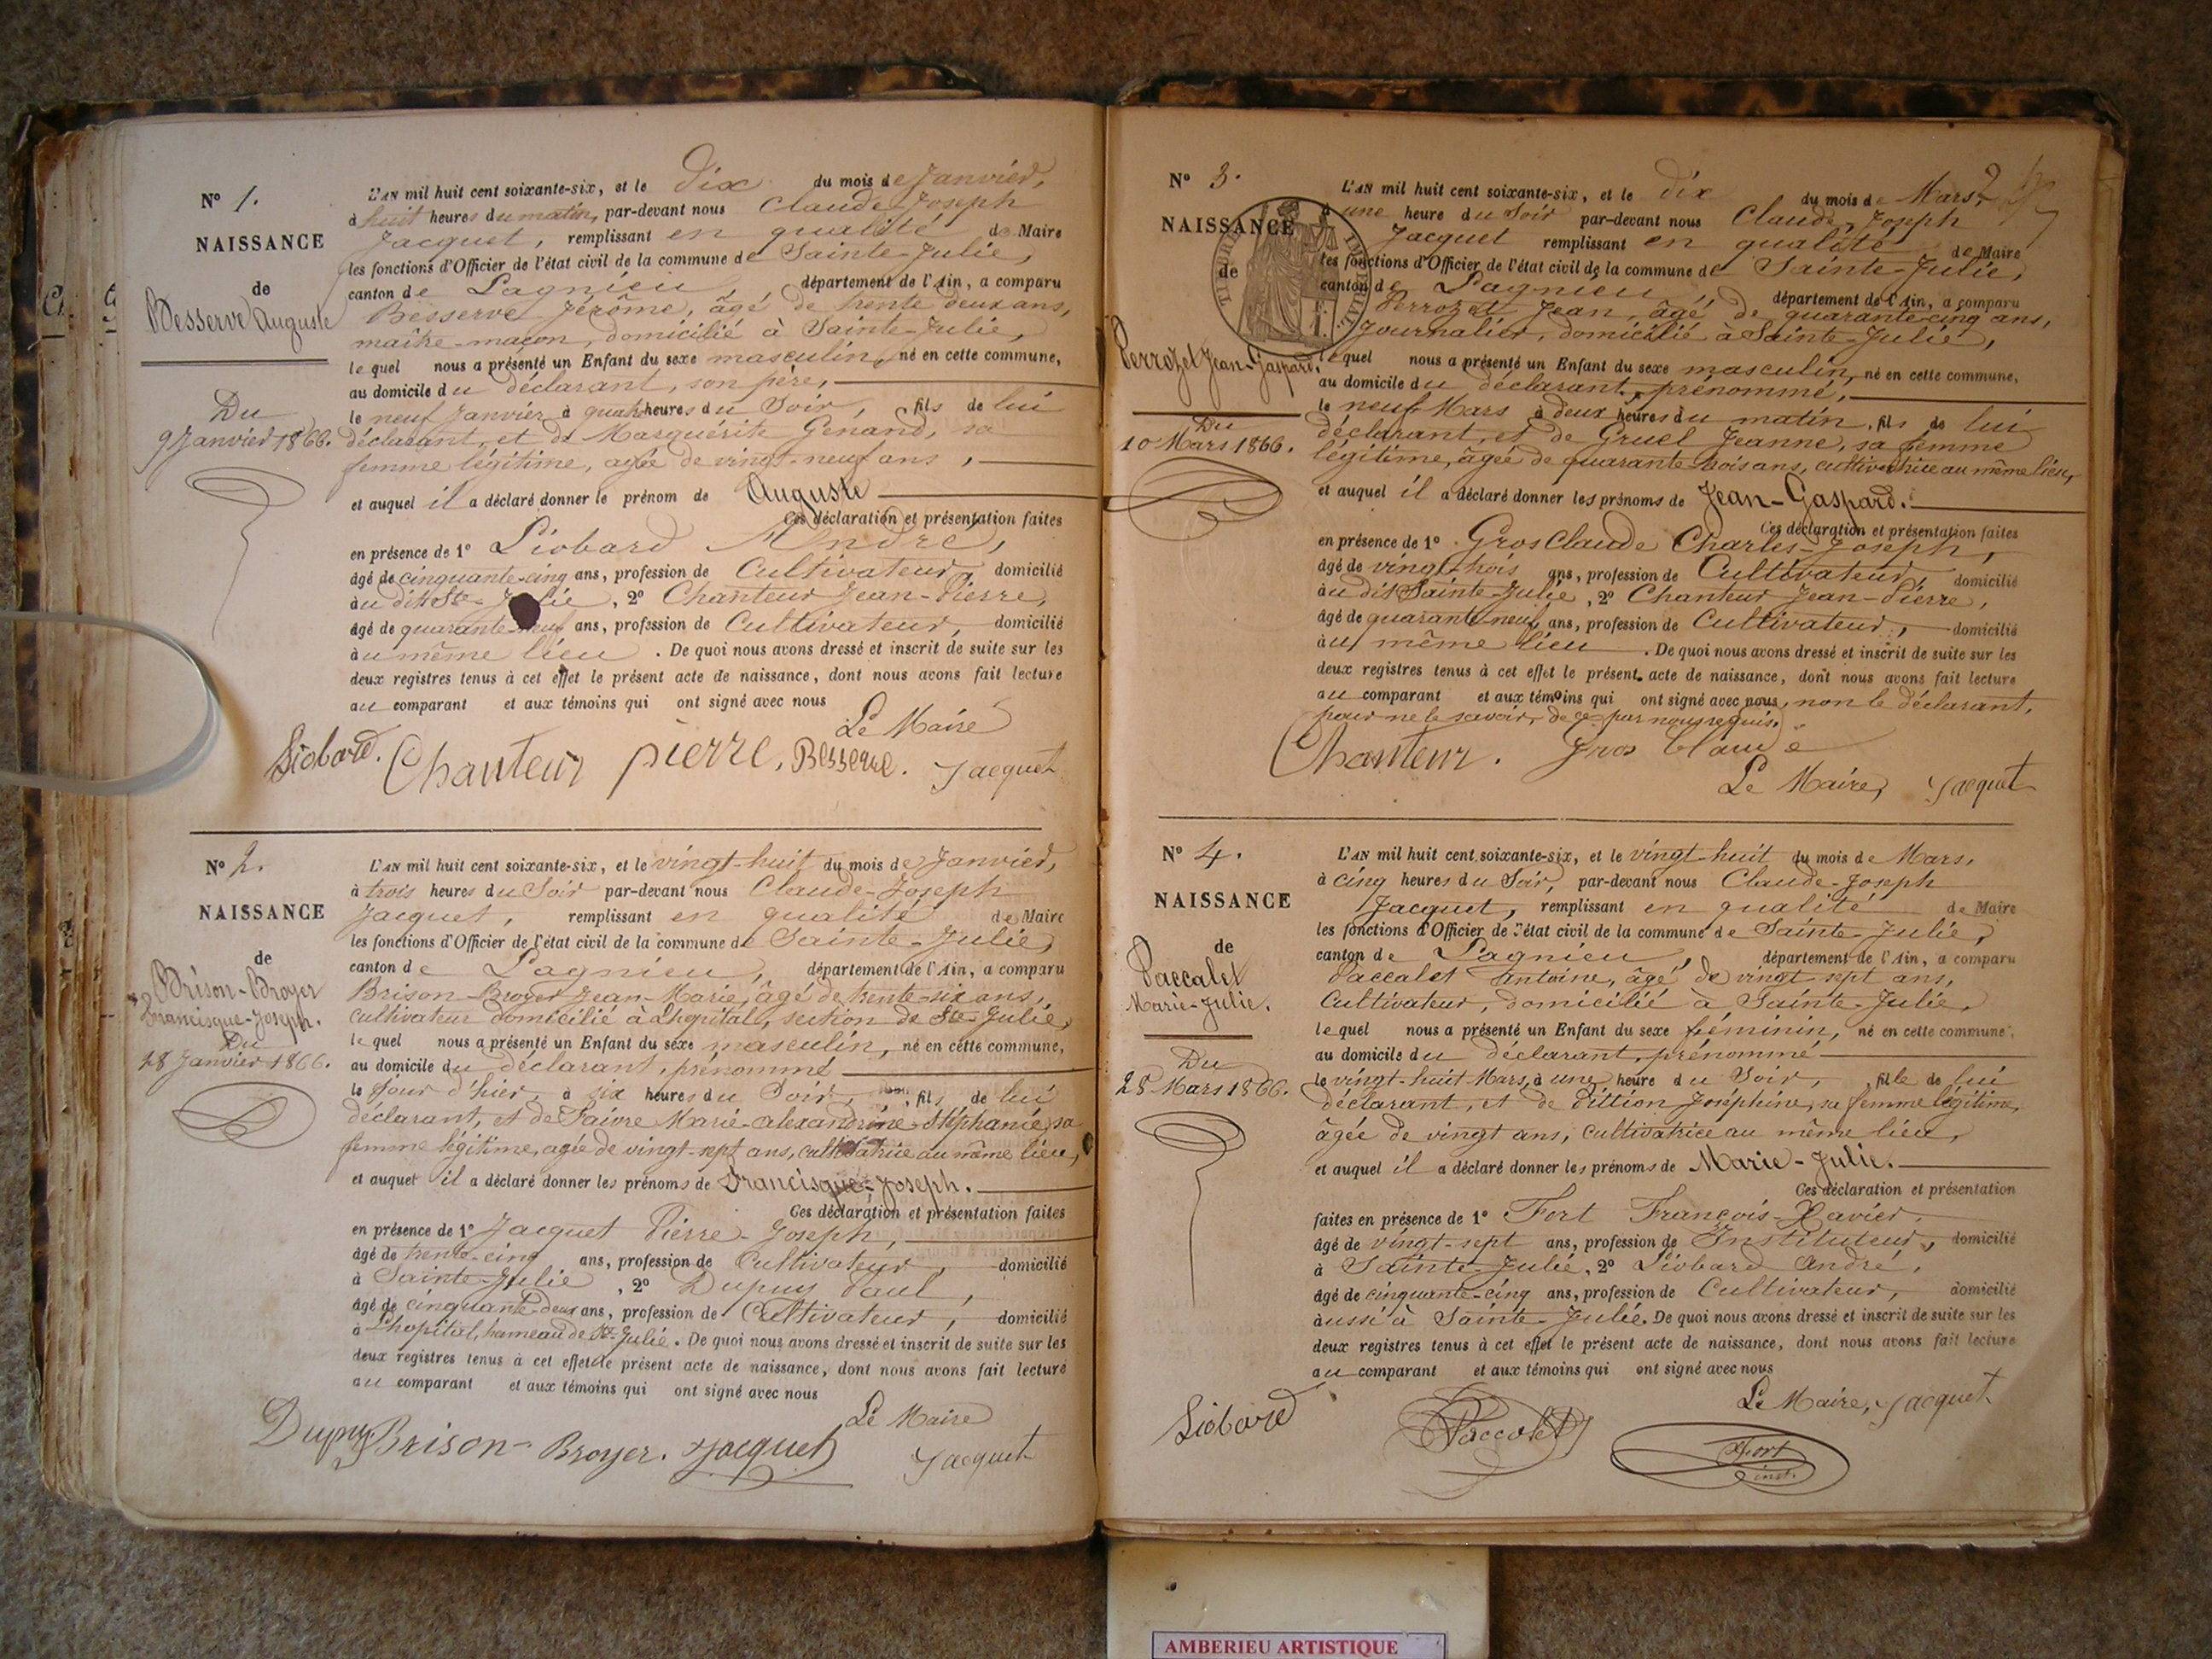 N° 1.
NAISSANCE
de
Besserve Auguste
Du
9 Janvier 1866.
L'AN mil huit cent soixante-six, et le dix du mois de Janvier,
à huit heures du matin, par-devant nous Claude-Joseph
Jacquet, remplissant en qualité de Maire
les fonctions d'Officier de l'état civil de la commune de Sainte-Julie,
canton de Lagnieu, département de l'Ain, a comparu
Besserve Jérôme, âgé de trente deux ans,
maître-maçon, domicilié à Sainte-Julie,
lequel nous a présenté un Enfant du sexe masculin, né en cette commune,
au domicile du déclarant, son père,
le neuf Janvier à quatre heures du Soir, fils de lui
déclarant, et de Marguérite Genand, sa
femme légitime, agée de vingt-neuf ans,
et auquel il a déclaré donner le prénom de Auguste
Ces déclaration et présentation faites
en présence de 1° Liobard André,
âgé de cinquante-cinq ans, profession de Cultivateur, domicilié
au dit Ste-Julie, 2° Chanteur Jean-Pierre,
âgé de quarante-neuf ans, profession de Cultivateur, domicilié
au même lieu. De quoi nous avons dressé et inscrit de suite sur les
deux registres tenus à cet effet le présent acte de naissance, dont nous avons fait lecture
au comparant et aux témoins qui ont signé avec nous
Le Maire
Liobard. Chanteur pierre, Besserve. Jacquet
N° 2.
NAISSANCE
de
Brison-Broyer
Francisque-Joseph.
Du
28 Janvier 1866.
L'AN mil huit cent soixante-six, et le vingt-huit du mois de Janvier,
à trois heures du Soir par-devant nous Claude-Joseph
Jacquet, remplissant en qualité de Maire
les fonctions d'Officier de l'état civil de la commune de Sainte-Julie,
canton de Lagnieu, département de l'Ain, a comparu
Brison-Broyer Jean-Marie, âgé de trente-six ans,
cultivateur domicilié à Lhopital, section de Ste-Julie,
lequel nous a présenté un Enfant du sexe masculin, né en cette commune,
au domicile du déclarant, prénommé
le jour d'hier, à six heures du Soir, fils de lui
déclarant, et de Faivre Marie-alexandrine-Stéphanie, sa
femme légitime, agée de vingt-sept ans, cultivatrice au même lieu,
et auquel il a déclaré donner les prénoms de Francisque-Joseph.
Ces déclaration et présentation faites
en présence de 1° Jacquet Pierre-Joseph,
âgé de trente-cinq ans, profession de Cultivateur, domicilié
à Sainte-Julie, 2° Dupuy Paul,
âgé de cinquante-deux ans, profession de Cultivateur, domicilié
à Lhopital, hameau de Ste-Julie. De quoi nous avons dressé et inscrit de suite sur les
deux registres tenus à cet effet le présent acte de naissance, dont nous avons fait lecture
au comparant et aux témoins qui ont signé avec nous
Le Maire
Dupuy Brison-Broyer. Jacquet Jacquet
N° 3.
NAISSANCE
de
Perrozet Jean-Gaspard.
Du
10 Mars 1866.
2
L'AN mil huit cent soixante-six, et le dix du mois de Mars,
à une heure du Soir par-devant nous Claude-Joseph
Jacquet remplissant en qualité de Maire
les fonctions d'Officier de l'état civil de la commune de Sainte-Julie,
canton de Lagnieu, département de l'Ain, a comparu
Perrozet Jean, âgé de quarante-cinq ans,
Journalier, domicilié à Sainte-Julie,
lequel nous a présenté un Enfant du sexe masculin, né en cette commune,
au domicile du déclarant, prénommé,
le neuf Mars à deux heures du matin, fils de lui
déclarant, et de Gruel Jeanne, sa femme
légitime, âgée de quarante-trois ans, cultivatrice au même lieu,
et auquel il a déclaré donner les prénoms de Jean-Gaspard.
Ces déclaration et présentation faites
en présence de 1° GrosClaude Charles-Joseph,
âgé de vingt-trois ans, profession de Cultivateur, domicilié
au dit Sainte-Julie, 2° Chanteur Jean-Pierre,
âgé de quarante-neuf ans, profession de Cultivateur, domicilié
au même lieu. De quoi nous avons dressé et inscrit de suite sur les
deux registres tenus à cet effet le présent acte de naissance, dont nous avons fait lecture
au comparant et aux témoins qui ont signé avec nous, non le déclarant,
pour ne le savoir, de ce par nous requis.
Chanteur. Gros Claude
Le Maire, Jacquet
N° 4.
NAISSANCE
de
Paccalet
Marie-Julie.
Du
28 Mars 1866.
L'AN mil huit cent soixante-six, et le vingt-huit du mois de Mars,
à cinq heures du Soir, par-devant nous Claude-Joseph
Jacquet, remplissant en qualité de Maire
les fonctions d'Officier de l'état civil de la commune de Sainte-Julie,
canton de Lagnieu, département de l'Ain, a comparu
Paccalet Antoine, âgé de vingt-sept ans,
Cultivateur, domicilié à Sainte-Julie,
lequel nous a présenté un Enfant du sexe féminin, né en cette commune,
au domicile du déclarant, prénommé
le vingt-huit Mars, à une heure du Soir, fille de lui
déclarant, et de Pittion Joséphine, sa femme légitime,
âgée de vingt ans, cultivatrice au même lieu,
et auquel il a déclaré donner les prénoms de Marie-Julie.
Ces déclaration et présentation
faites en présence de 1° Fort François-Xavier,
âgé de vingt-sept ans, profession de Instituteur, domicilié
à Sainte-Julie, 2° Liobard André,
âgé de cinquante-cinq ans, profession de Cultivateur, domicilié
aussi à Sainte-Julie. De quoi nous avons dressé et inscrit de suite sur les
deux registres tenus à cet effet le présent acte de naissance, dont nous avons fait lecture
au comparant et aux témoins qui ont signé avec nous
Le Maire, Jacquet
Liobard Paccalet Fort
inst.
AMBERIEU ARTISTIQUE